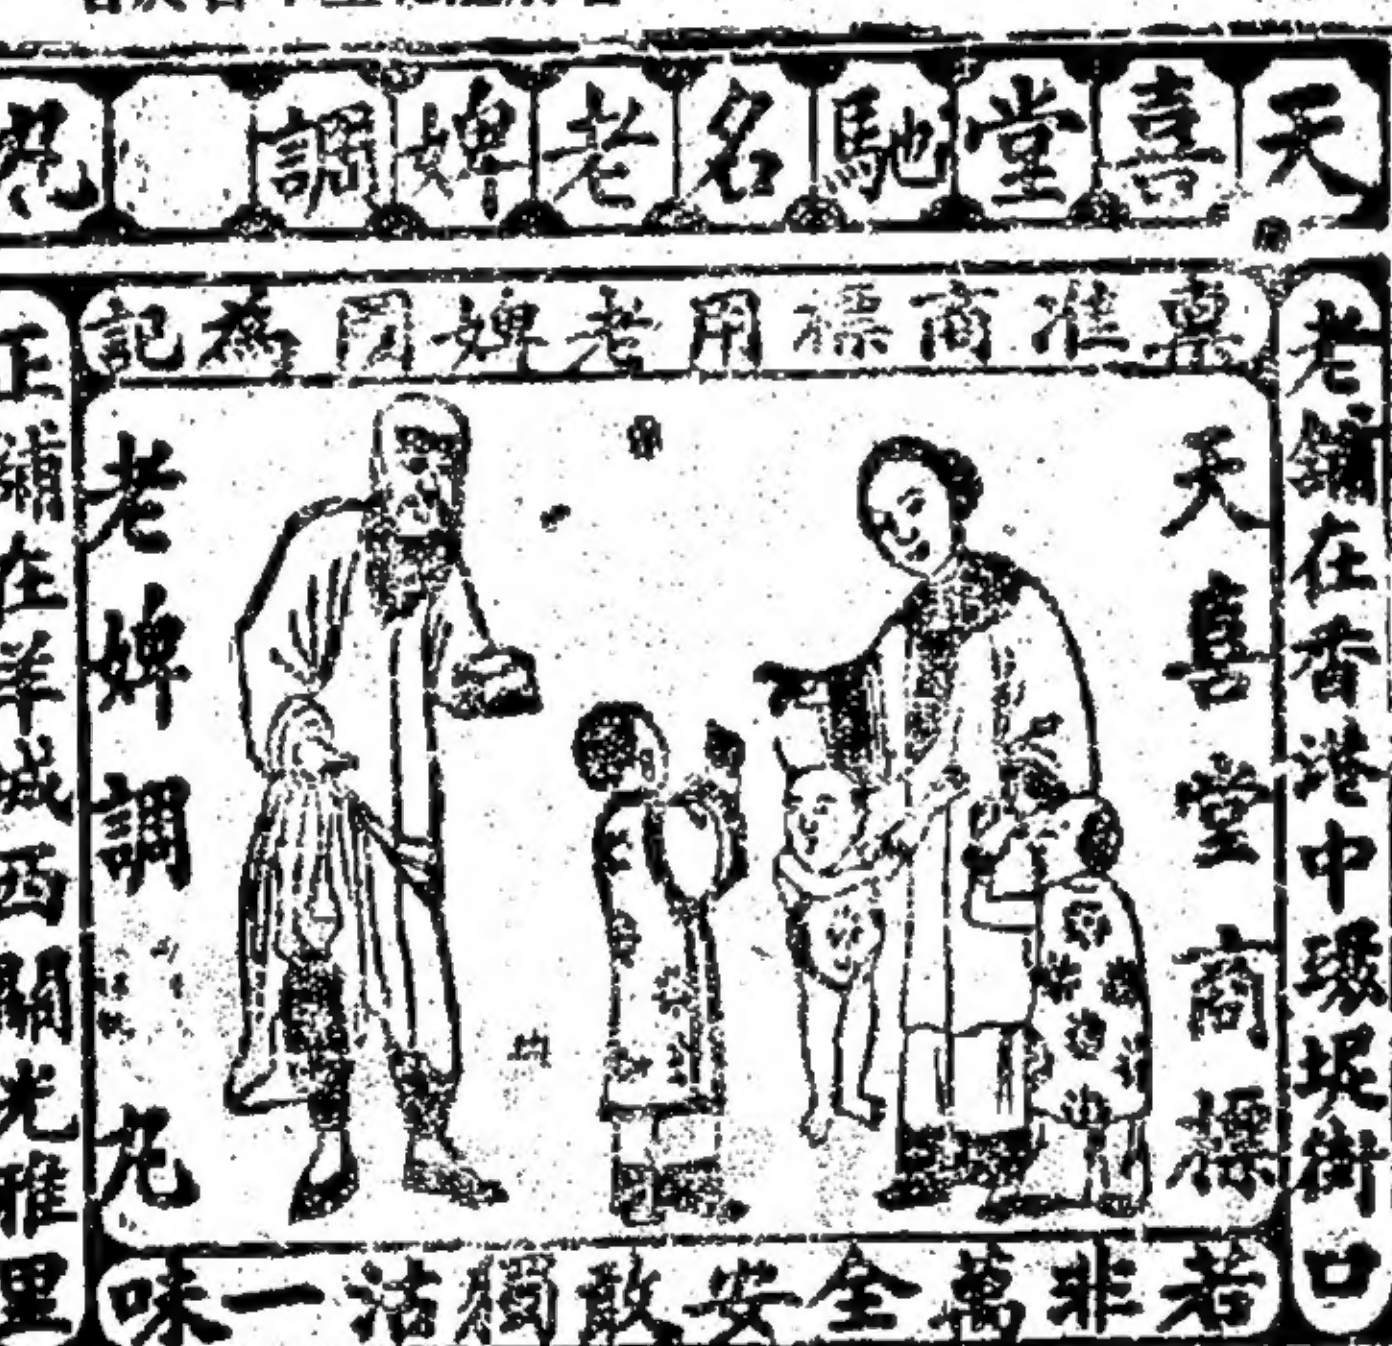 天喜堂馳名老婢調 丸
稟准商標用老婢調為記
老舖在香港中環堤街口
天喜堂商標
老婢調 丸
正舖在羊城西關光雅里
若非萬全安敢獨沽一味